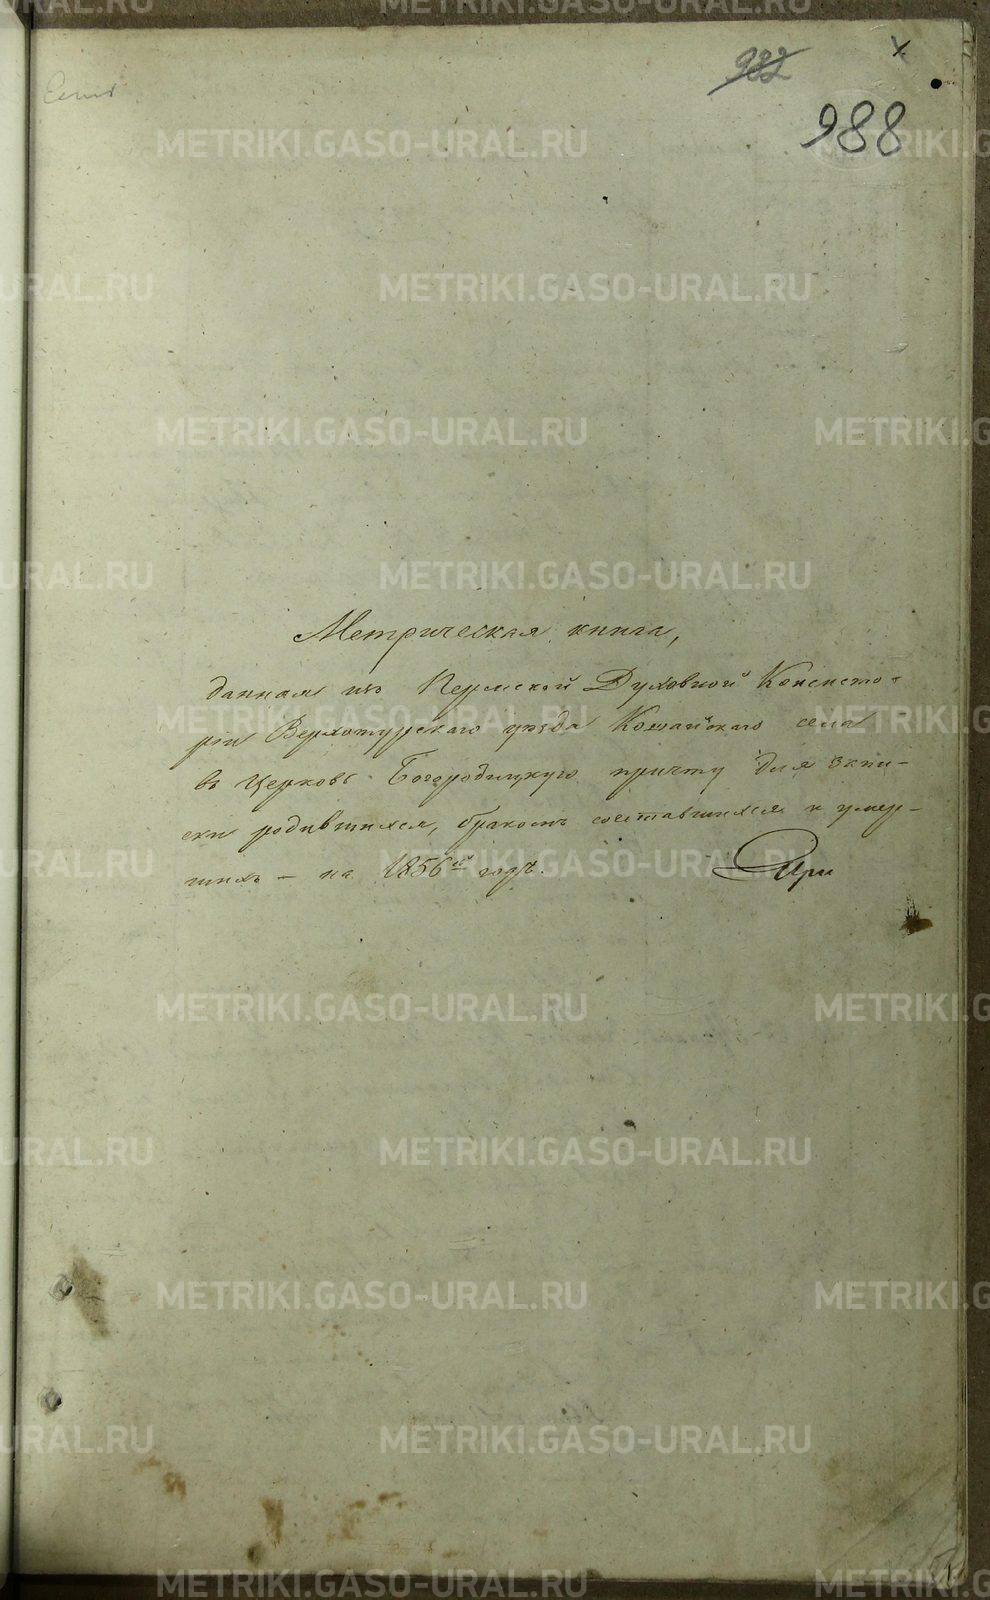 Есть
982
988
Метрическая книга,
данная изъ Пермской Духовной Консисто-
ріи Верхотурскаго уѣзда Кошайскаго села
въ Церковь Богородицкую причту для запи-
ски родившихся, бракомъ сочетавшихся и умер-
шихъ – на 1856ой годъ.
METRIKI.GASO-URAL.RU